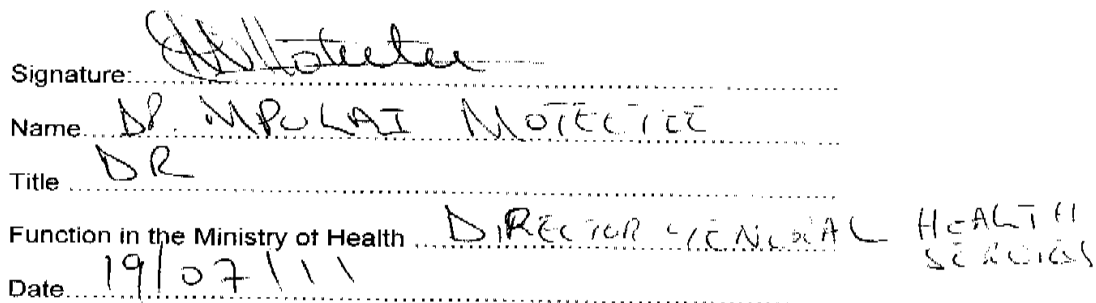 Signature:
Name DR. MPOLAI MOTEETEE
Title DR
Function in the Ministry of Health DIRECTOR GENERAL HEALTH SERVICES
Date 19/07/11